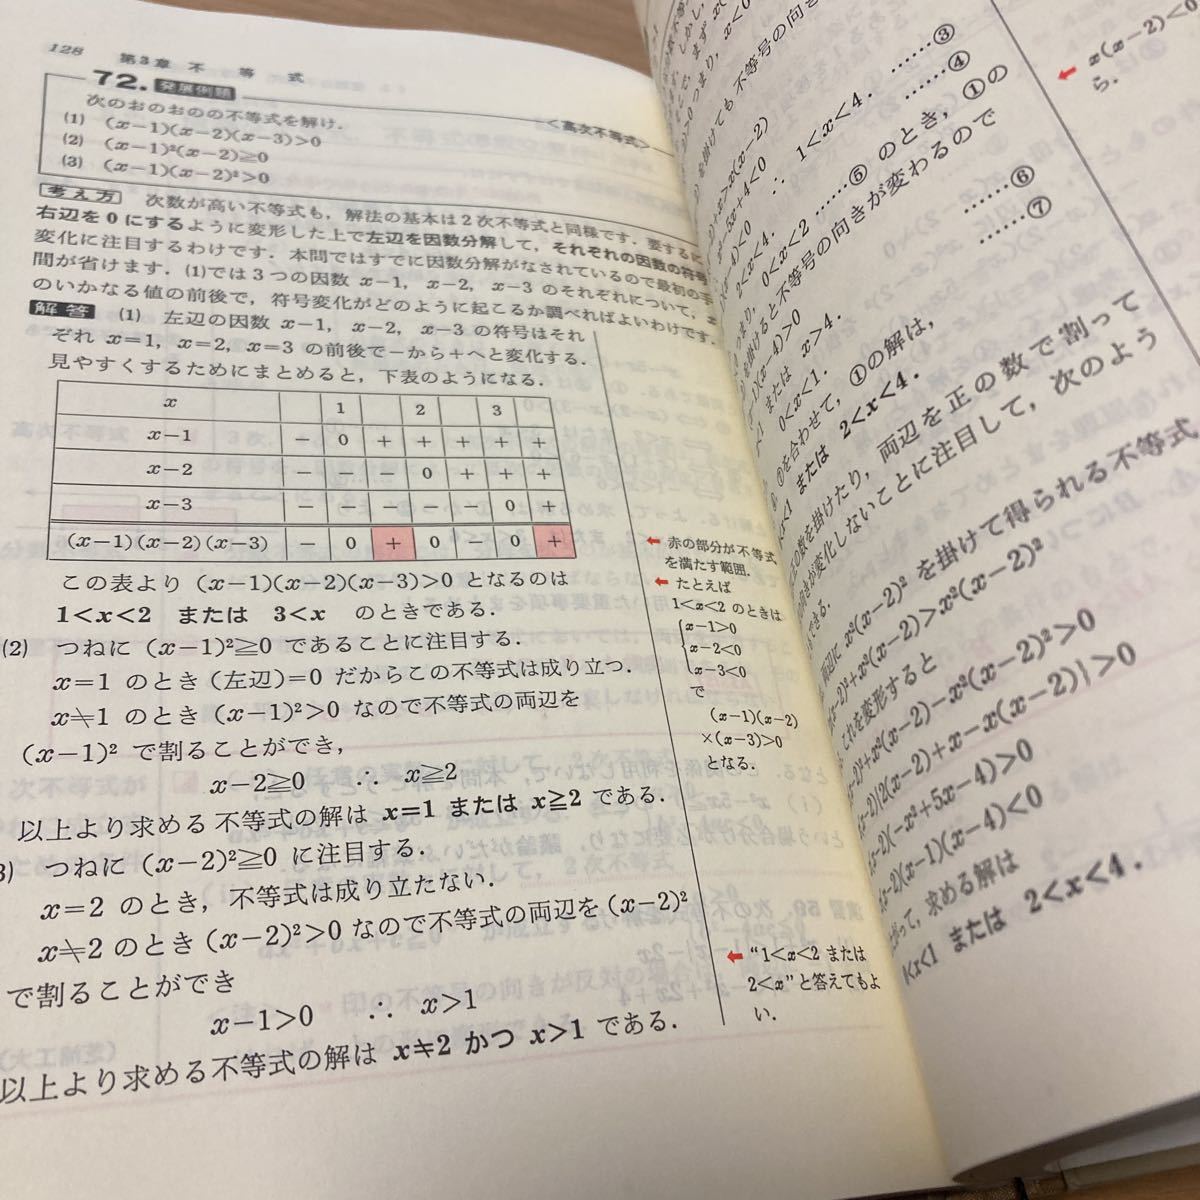 128　第3章 不　等　式
72. 発展例題
＜高次不等式＞
次のおのおのの不等式を解け．
(1)　(x−1)(x−2)(x−3)>0
(2)　(x−1)²(x−2)≧0
(3)　(x−1)(x−2)²>0
考え方　次数が高い不等式も，解法の基本は2次不等式と同様です．要するに，
右辺を0にするように変形した上で左辺を因数分解して，それぞれの因数の符号
変化に注目するわけです．本問ではすでに因数分解がなされているので最初の手
間が省けます．(1)では3つの因数 x−1，x−2，x−3 のそれぞれについて，x
のいかなる値の前後で，符号変化がどのように起こるか調べればよいわけです．
解答　(1)　左辺の因数 x−1，x−2，x−3 の符号はそれ
ぞれ x=1，x=2，x=3 の前後で−から＋へと変化する．
見やすくするためにまとめると，下表のようになる．
x　1　2　3
x−1　−　0　＋　＋　＋　＋　＋
x−2　−　−　−　0　＋　＋　＋
x−3　−　−　−　−　−　0　＋
(x−1)(x−2)(x−3)　−　0　＋　0　−　0　＋
この表より (x−1)(x−2)(x−3)>0 となるのは
1<x<2　または　3<x　のときである．
← 赤の部分が不等式
を満たす範囲．
← たとえば
1<x<2 のときは
x−1>0
x−2<0
x−3<0
で
(x−1)(x−2)
×(x−3)>0
となる．
(2)　つねに (x−1)²≧0 であることに注目する．
x=1 のとき (左辺)=0 だからこの不等式は成り立つ．
x≠1 のとき (x−1)²>0 なので不等式の両辺を
(x−1)² で割ることができ，
x−2≧0　∴　x≧2
以上より求める不等式の解は x=1 または x≧2 である．
3)　つねに (x−2)²≧0 に注目する．
x=2 のとき，不等式は成り立たない．
x≠2 のとき (x−2)²>0 なので不等式の両辺を (x−2)²
で割ることができ
x−1>0　∴　x>1
以上より求める不等式の解は x≠2 かつ x>1 である．
← “1<x<2 または
2<x”と答えてもよ
い．
x<0
を掛けても不等号の向きが
……③
+x>x(x−2)
……④
x²−5x+4<0　∴　1<x<4．
(x−4)<0
2<x<4．
0<x<2 ……⑤ のとき，①の
を掛けると不等号の向きが変わるので
(x−4)>0
または　x>4．
……⑥
0<x<1．
……⑦
⑦を合わせて，①の解は，
または　2<x<4．
の数を掛けたり，両辺を正の数で割って
の向きが変化しないことに注目して，次のよう
できる．
両辺に x²(x−2)² を掛けて得られる不等式
x−2)²+x²(x−2)>x²(x−2)²
これを変形すると
−2)²+x²(x−2)−x²(x−2)²>0
x−2){2(x−2)+x−x(x−2)}>0
x−2)(−x²+5x−4)>0
x−2)(x−1)(x−4)<0
がって，求める解は
<x<1 または　2<x<4．
← x(x−2)<0
ら．